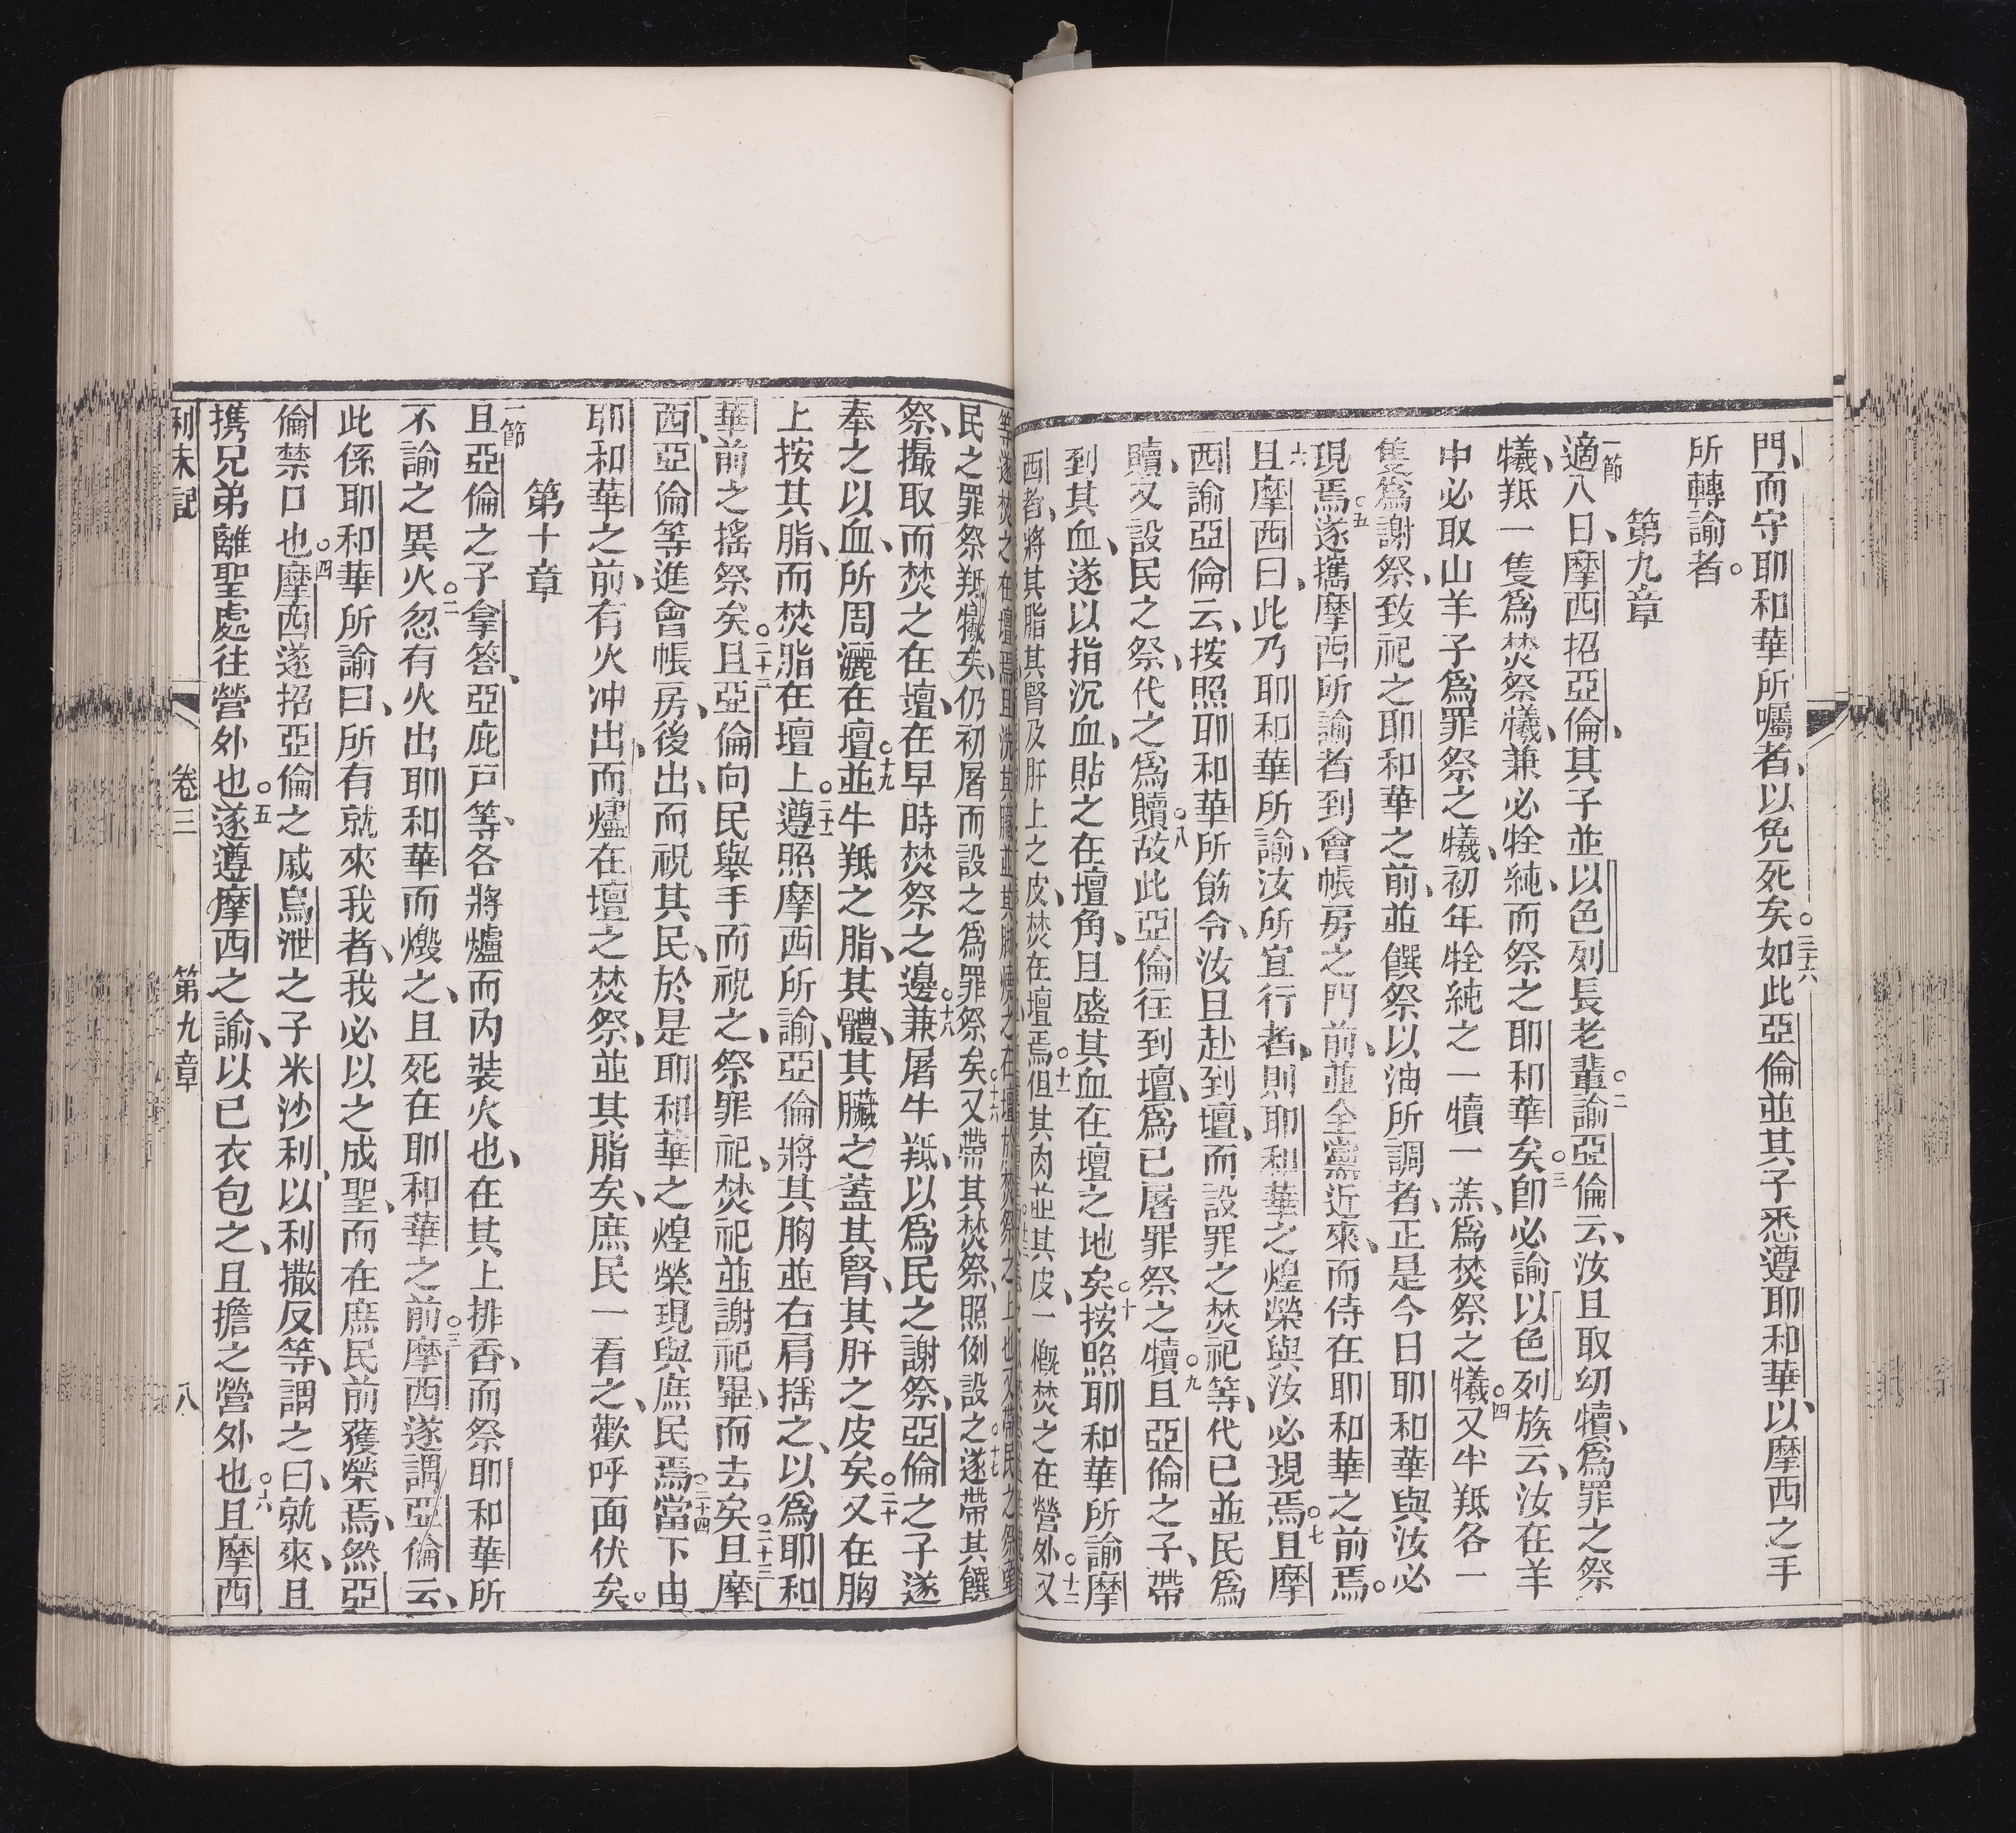 門、而守耶和華所囑者、以免死矣。三十六如此亞倫並其子悉遵耶和華、以摩西之手
所轉諭者。
第九章
一節適八日、摩西招亞倫、其子並以色列長老輩。二諭亞倫云、汝且取幼犢、爲罪之祭
犧、羝一隻爲焚祭犧、兼必牷純、而祭之耶和華矣。三卽必諭以色列族云、汝在羊
中必取山羊子爲罪祭之犧、初年牷純之一犢一羔、爲焚祭之犧。四又牛羝各一
隻爲謝祭、致祀之耶和華之前、並饌祭以油所調者、正是今日耶和華與汝必
現焉。五遂攜摩西所諭者到會帳房之門前、並全黨近來、而侍在耶和華之前焉。
六且摩西曰、此乃耶和華所諭、汝所宜行者、則耶和華之煌榮與汝必現焉。七且摩
西諭亞倫云、按照耶和華所飭令、汝且赴到壇、而設罪之焚祀等、代已並民爲
贖、又設民之祭、代之爲贖。八故此亞倫往到壇、爲已屠罪祭之犢。九且亞倫之子、帶
到其血、遂以指沉血、貼之在壇角、且盛其血在壇之地矣。十按照耶和華所諭摩
西者、將其脂其腎及肝上之皮、焚在壇焉。十一但其肉並其皮、一概焚之在營外。十二又
民之罪祭羝犧矣、仍初屠而設之爲罪祭矣。十六又帶其焚祭、照例設之。十七遂帶其饌
祭、撮取而焚之在壇、在早時焚祭之邊。十八兼屠牛羝、以爲民之謝祭、亞倫之子遂
奉之以血、所周灑在壇。十九並牛羝之脂、其體、其臟之蓋其腎、其肝之皮矣。二十又在胸
上按其脂、而焚脂在壇上。二十一遵照摩西所諭、亞倫將其胸並右肩搖之、以爲耶和
華前之搖祭矣。二十二且亞倫向民舉手而祝之、祭罪祀、焚祀並謝祀畢、而去矣。二十三且摩
西、亞倫等進會帳房、後出、而祝其民、於是耶和華之煌榮現與庶民焉。二十四當下由
耶和華之前、有火冲出、而燼在壇之焚祭、並其脂矣、庶民一看之、歡呼面伏矣。
第十章
一節且亞倫之子拿答、亞庇戸等、各將爐而內裝火也、在其上排香、而祭耶和華所
不諭之異火。二忽有火出耶和華而燬之、且死在耶和華之前。三摩西遂謂亞倫云、
此係耶和華所諭曰、所有就來我者、我必以之成聖、而在庶民前獲榮焉、然亞
倫禁口也。四摩西遂招亞倫之戚烏泄之子米沙利、以利撒反等、謂之曰、就來、且
携兄弟離聖處往營外也。五遂遵摩西之諭、以已衣包之、且擔之營外也。六且摩西
利未記 卷三 第九章 八